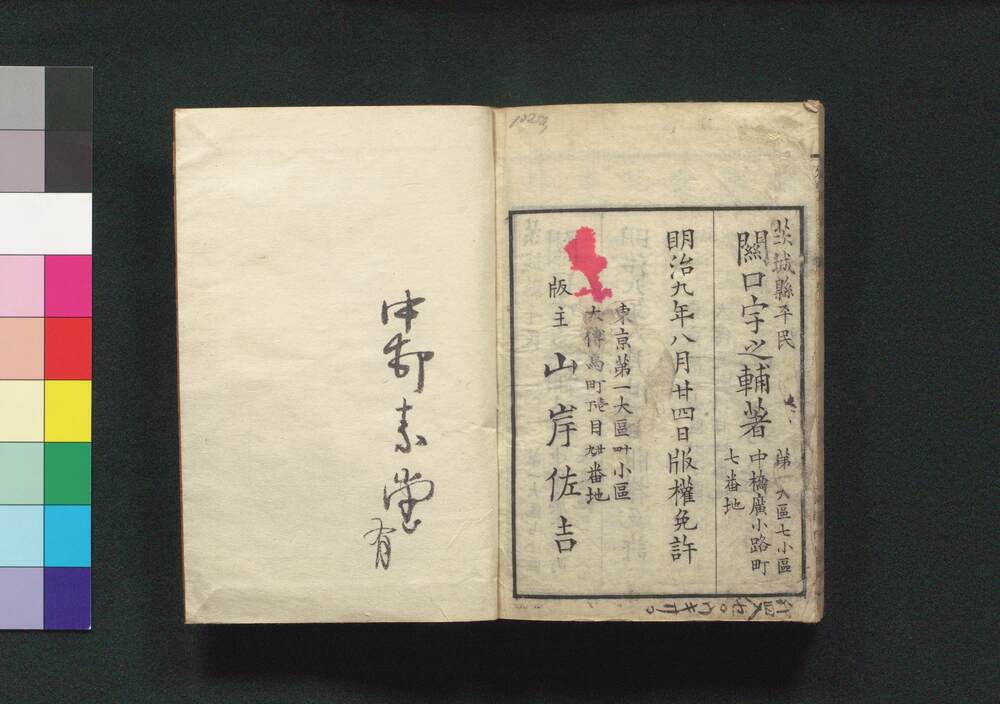 茨城縣平民
關口宇之輔著
第一大區七小區
中橋廣小路町
七番地
明治九年八月廿四日版權免許
東京第一大區
小區
大傳馬町
目
番地
版主
山岸佐吉
素堂
有